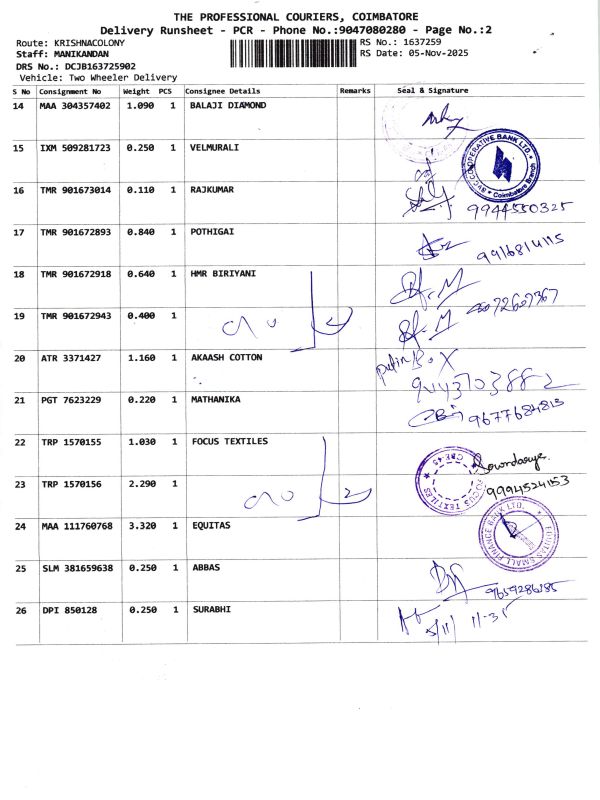 THE PROFESSIONAL COURIERS, COIMBATORE
Delivery Runsheet - PCR - Phone No.:9047080280 - Page No.:2
Route: KRISHNACOLONY RS No.: 1637259
Staff: MANIKANDAN RS Date: 05-Nov-2025
DRS No.: DCJB163725902
Vehicle: Two Wheeler Delivery
S No Consignment No Weight PCS Consignee Details Remarks Seal & Signature
14 MAA 304357402 1.090 1 BALAJI DIAMOND
15 IXM 509281723 0.250 1 VELMURALI
CO-OPERATIVE BANK LTD. Coimbatore Branch
16 TMR 901673014 0.110 1 RAJKUMAR
9944550325
17 TMR 901672893 0.840 1 POTHIGAI
9916814115
18 TMR 901672918 0.640 1 HMR BIRIYANI
19 TMR 901672943 0.400 1
20 ATR 3371427 1.160 1 AKAASH COTTON
21 PGT 7623229 0.220 1 MATHANIKA
9677684813
22 TRP 1570155 1.030 1 FOCUS TEXTILES
FOCUS TEXTILES CBE-45
23 TRP 1570156 2.290 1
9994524153
24 MAA 111760768 3.320 1 EQUITAS
EQUITAS SMALL FINANCE BANK LTD.
25 SLM 381659638 0.250 1 ABBAS
9659286185
26 DPI 850128 0.250 1 SURABHI
5/11 11-35